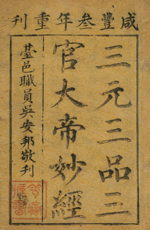 咸豐叁年重刊
三元三品三
官大帝妙經
邑職員吳安邦敬刊